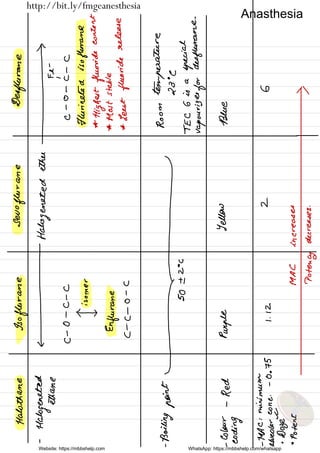 http://bit.ly/fmgeanesthesia
Anasthesia
Halothane
Isoflurane
Sevoflurane
Desflurane
- Halogenated ethane
Halogenated ether
C-O-C-C
isomer
Enflurane
C-C-O-C
Fe-
C-O-C-C
Flurinated isoflurane
* Highest fluoride content
* Most stable
* Least fluoride release
- Boiling point
50 ± 2°C
Room temperature
23°C
TEC 6 is a special
vapourizer for desflurane.
- Colour coding
- Red
Purple
Yellow
Blue
- MAC: minimum
alveolar conc.
- 0.75
1.12
2
6
• Dose
• Potent
MAC increases
Potency decreases.
Website: https://mbbshelp.com
WhatsApp: https://mbbshelp.com/whatsapp